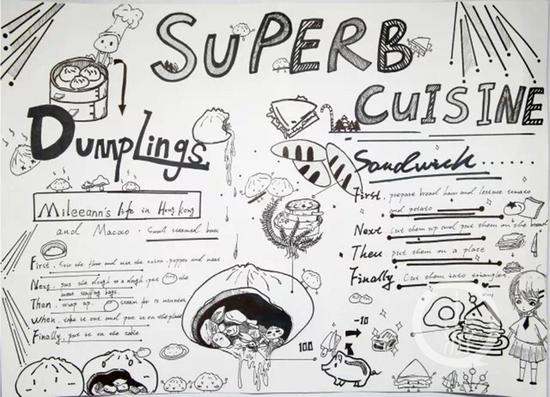 SUPERB
CUISINE
Dumplings
Mileeann's life in Hong Kong
and Macao. Small steamed bun
First,
Next, put the dough
Then, wrap up steam for 10 minutes
When take it out and put it on the plate
Finally, put it on the table
Sandwich......
First, prepare bread ham and lettuce tomato
and potato
Next cut them up and put them on the bread
Then put them on a place
Finally Cut them into triangles
100
-10